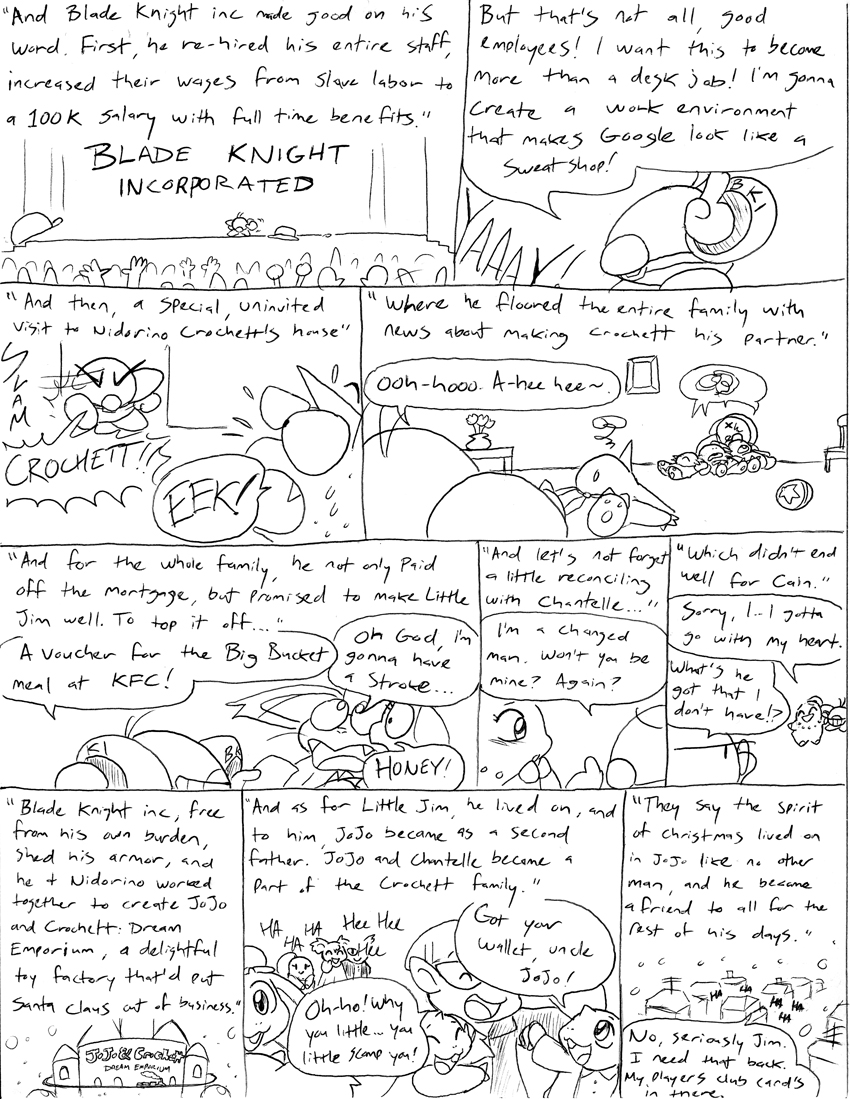 "And Blade Knight inc made good on his
word. First, he re-hired his entire staff,
increased their wages from slave labor to
a 100K salary with full time benefits."
BLADE KNIGHT
INCORPORATED
But that's not all, good
employees! I want this to become
more than a desk job! I'm gonna
create a work environment
that makes Google look like a
sweat shop!
BKI
YAAAY!
"And then, a special, uninvited
visit to Nidorino Crochett's house"
SLAM
CROCHETT!!
EEK!
"Where he floored the entire family with
news about making Crochett his partner."
Ooh-hooo. A-hee hee~
"And for the whole family,
he not only paid
off the mortgage, but promised to make Little
Jim well. To top it off..."
A voucher for the Big Bucket
meal at KFC!
Oh God, I'm
gonna have
a stroke...
KI
BA
HONEY!
"And let's not forget
a little reconciling
with Chantelle..."
I'm a changed
man. Won't you be
mine? Again?
"Which didn't end
well for Cain."
Sorry, I...I gotta
go with my heart.
What's he
got that I
don't have!?
"Blade Knight inc, free
from his own burden,
shed his armor, and
he + Nidorino worked
together to create JoJo
and Crochett: Dream
Emporium, a delightful
toy factory that'd put
Santa claus out of business."
JoJo & Crochett
DREAM EMPORIUM
"And as for Little Jim, he lived on, and
to him, JoJo became as a second
father. JoJo and Chantelle became a
part of the Crochett family."
HA HA Hee Hee
HA Hee
Got your
wallet, uncle
JoJo!
Oh-ho! Why
you little... you
little scamp you!
"They say the spirit
of christmas lived on
in JoJo like no other
man, and he became
a friend to all for the
rest of his days."
HA HA
HA HA
HA
No, seriously Jim.
I need that back.
My players club card's
in there.